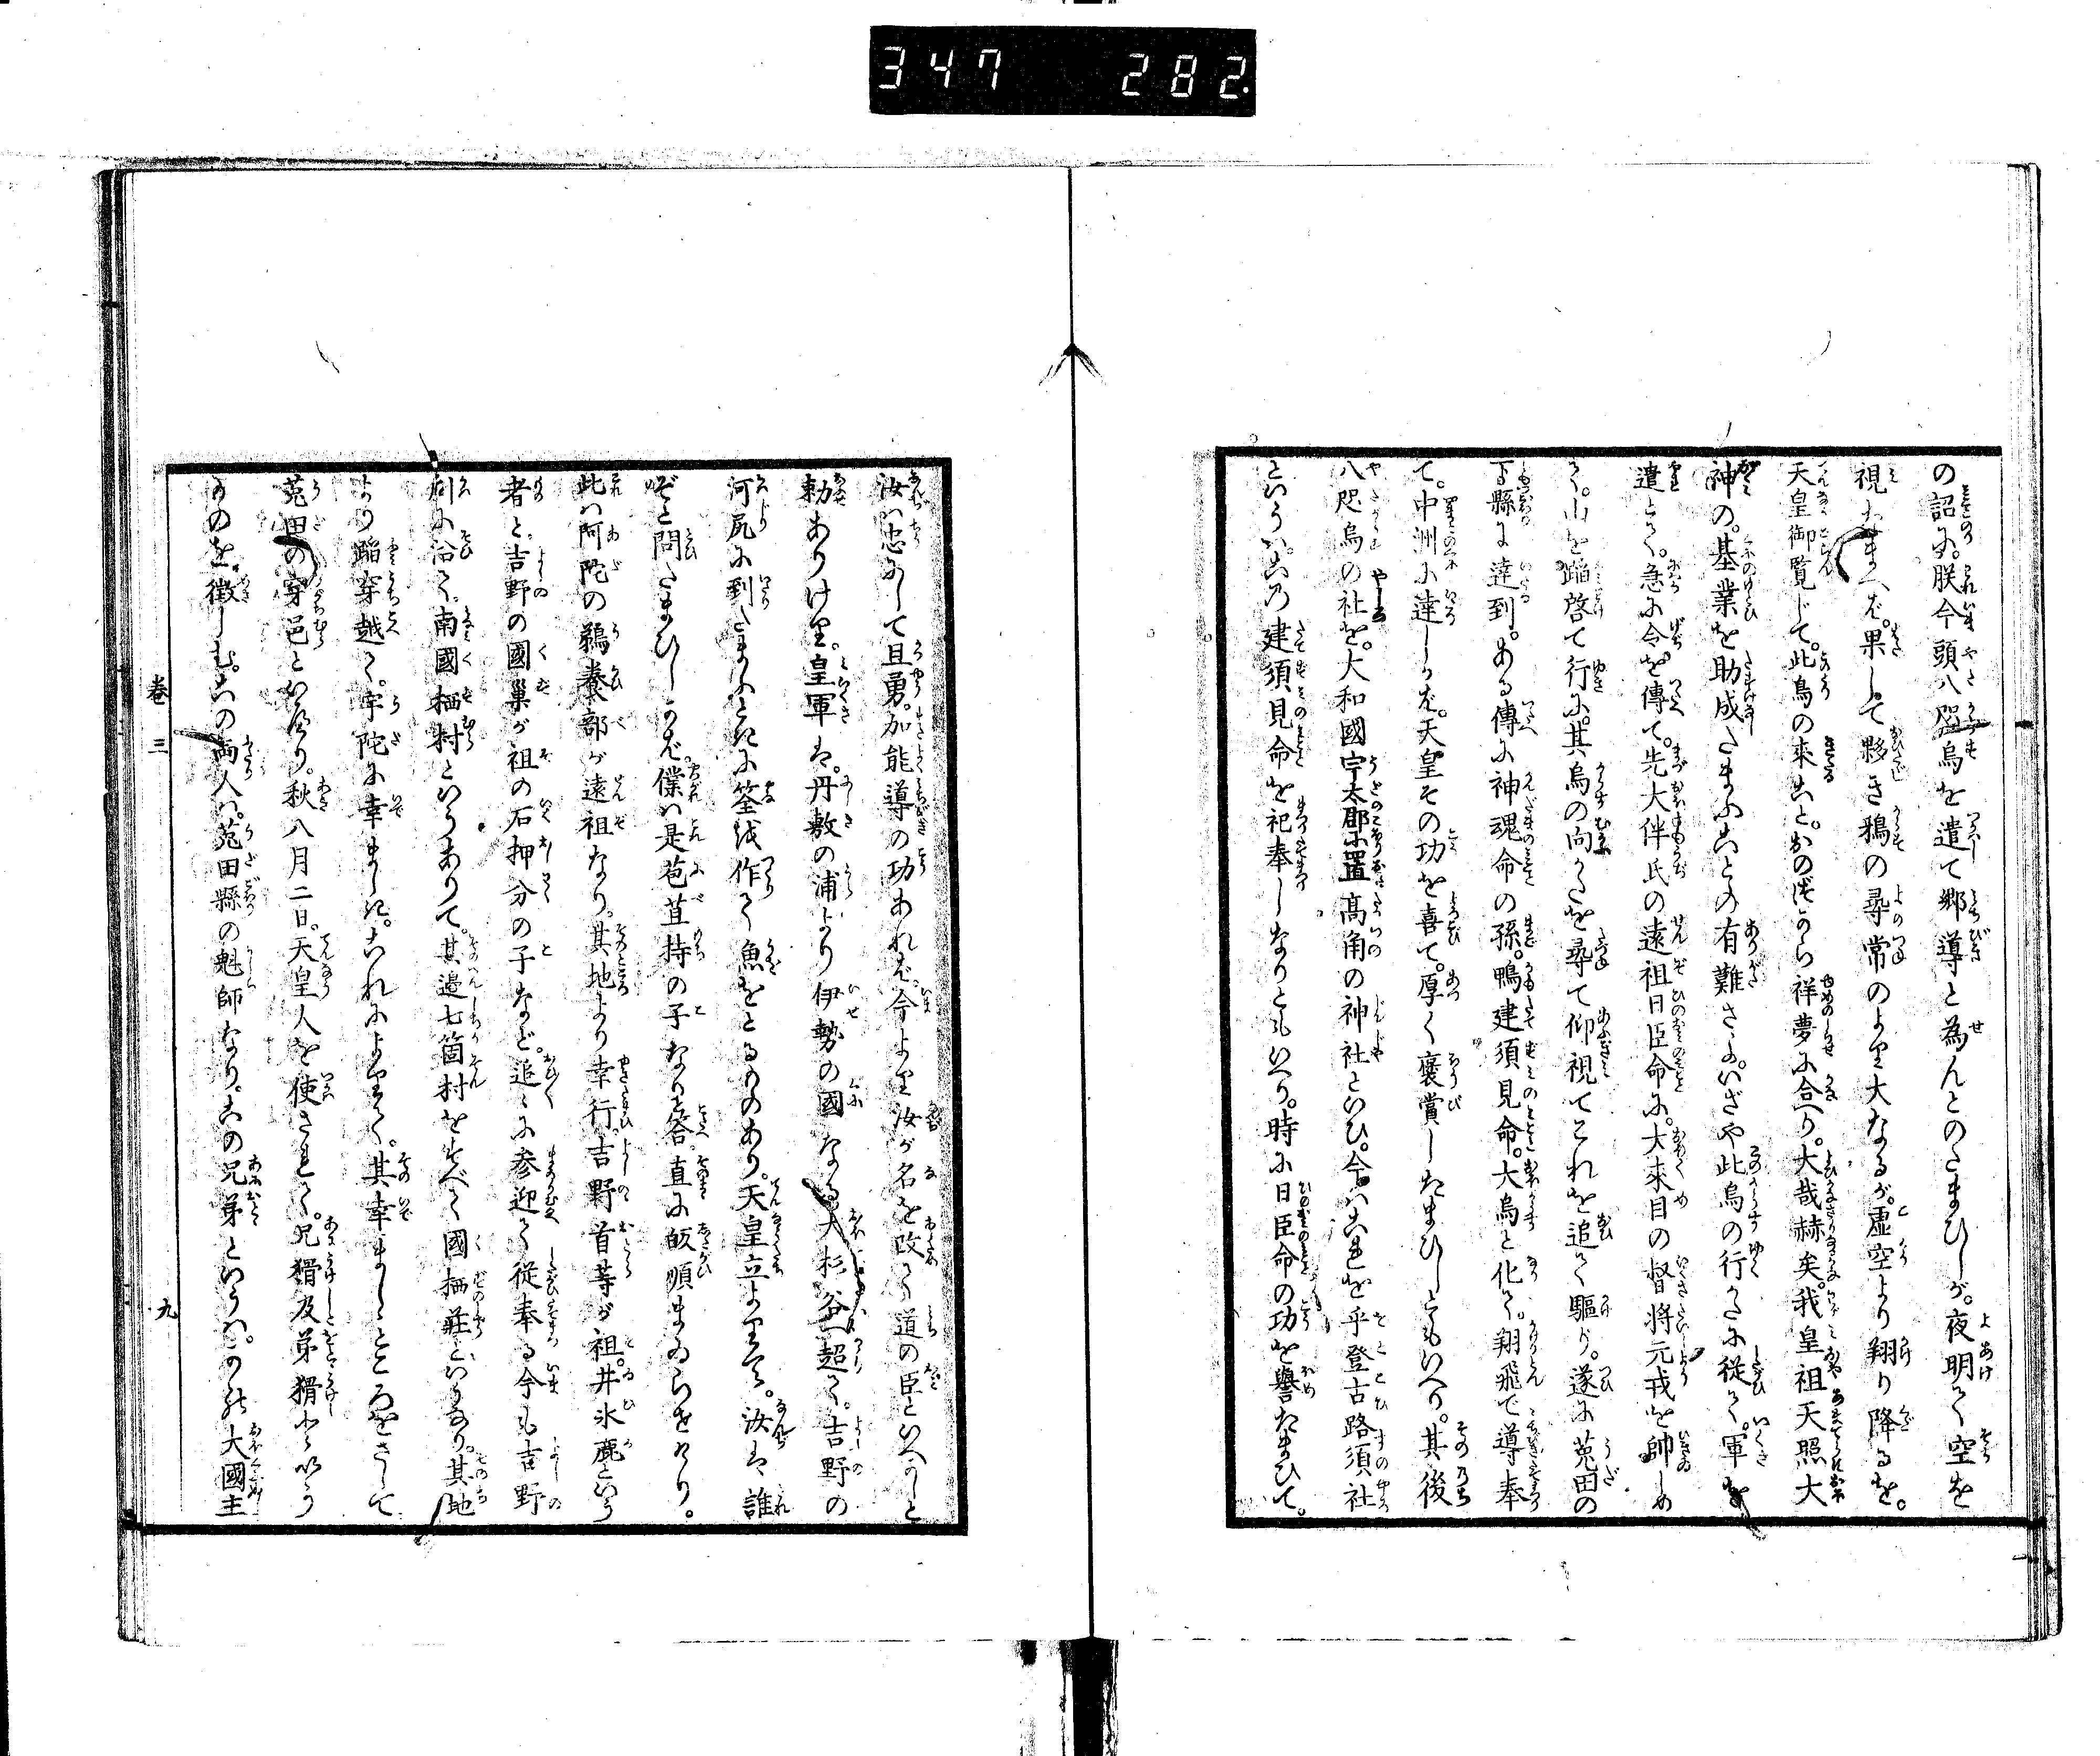 347 282
の詔に。朕今頭八咫烏を遣て郷導と為んとのたまひしが。夜明て空を
視たまへば。果して夥き鴉の尋常のより大なるが。虚空より翔り降るを。
天皇御覧じて。此鳥の来こと。おのづから祥夢に合へり。大哉赫矣。我皇祖天照大
神の。基業を助成たまふことの有難さよ。いざや此烏の行かたに従て。軍を
遣とて。急に令を傳て。先大伴氏の遠祖日臣命に。大来目の督将元戎を帥しめ
て。山を蹈啓て行に。其烏の向かたを尋て仰視てこれを追て驅り。遂に菟田の
下縣に達到。ある傳に神魂命の孫。鴨建須見命。大烏と化て。翔飛で導奉
て。中洲に達しかば。天皇その功を喜て。厚く褒賞したまひしともいへり。其後
八咫烏の社を。大和國宇太郡に置。高角の神社といひ。今はこれを乎登古路須社
といふは。この建須見命を祀奉しなりともいへり。時に日臣命の功を誉たまひて。
汝は忠にして且勇。加能導の功あれば。今より汝が名を改て道の臣といへかしと
勅ありけり。皇軍は。丹敷の浦より伊勢の國なる大杉谷へ超て。吉野の
河尻に到たまふときに筌を作て魚をとるものあり。天皇立よりて。汝は誰
ぞと問たまひしかば。僕は是苞苴持の子なりと答。直に皈順まゐらせけり。
此は阿陀の鵜養部が遠祖なり。其地より幸行。吉野首等が祖。井氷鹿といふ
者と。吉野の國巣が祖の石押分の子など。追々に参迎て従奉る今も吉野
川に沿て。南國栖村といふありて。其邉七箇村をすべて國栖荘といふなり。其地
より蹈穿越て。宇陀に幸ましき。これによりて。其幸ましゝところをさして
菟田の穿邑といへり。秋八月二日。天皇人を使されて。兄猾及弟猾といふ
ものを徴しむ。この両人は。菟田縣の魁師なり。この兄弟といふは。かの大國主
巻三 九